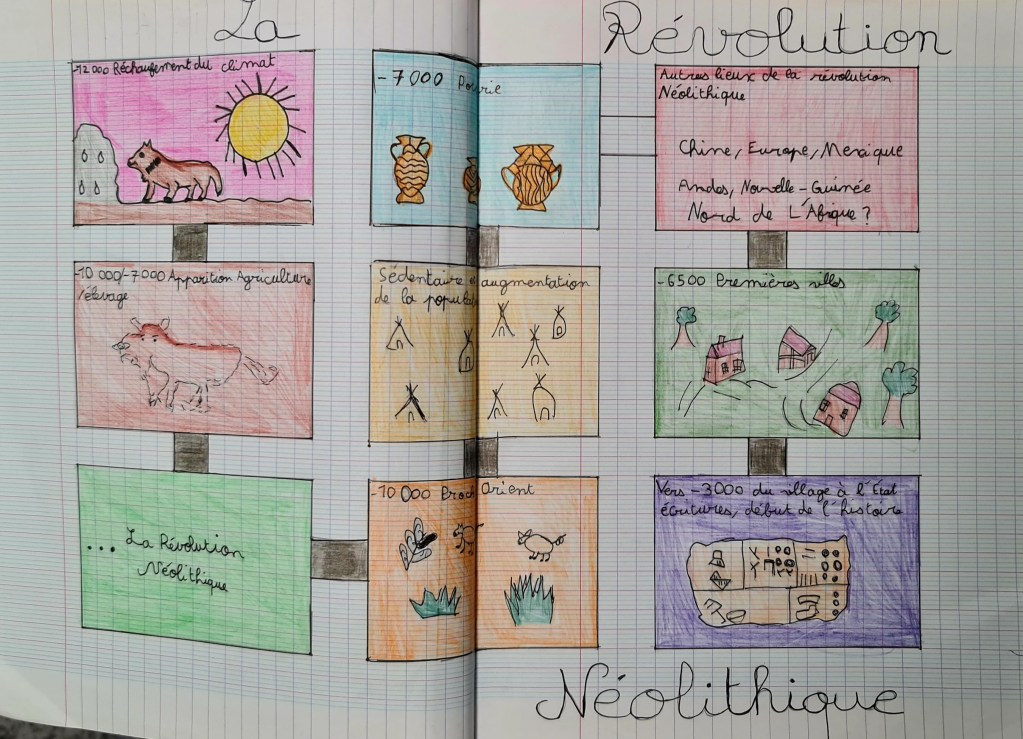 La Révolution
-12 000 Réchaufement du climat
-10 000/-7000 Apparition Agriculture
/élevage
... La Révolution
Néolithique
-10 000 Proch Orient
Sédentaire et augmentation
de la populat
-7000 Poterie
Autres lieux de la révolution
Néolithique
Chine, Europe, Mexique
Andes, Nouvelle-Guinée
Nord de L'Afrique ?
-6500 Premières villes
Vers -3000 du village à l'État
écritures, début de l'histoire
Néolithique